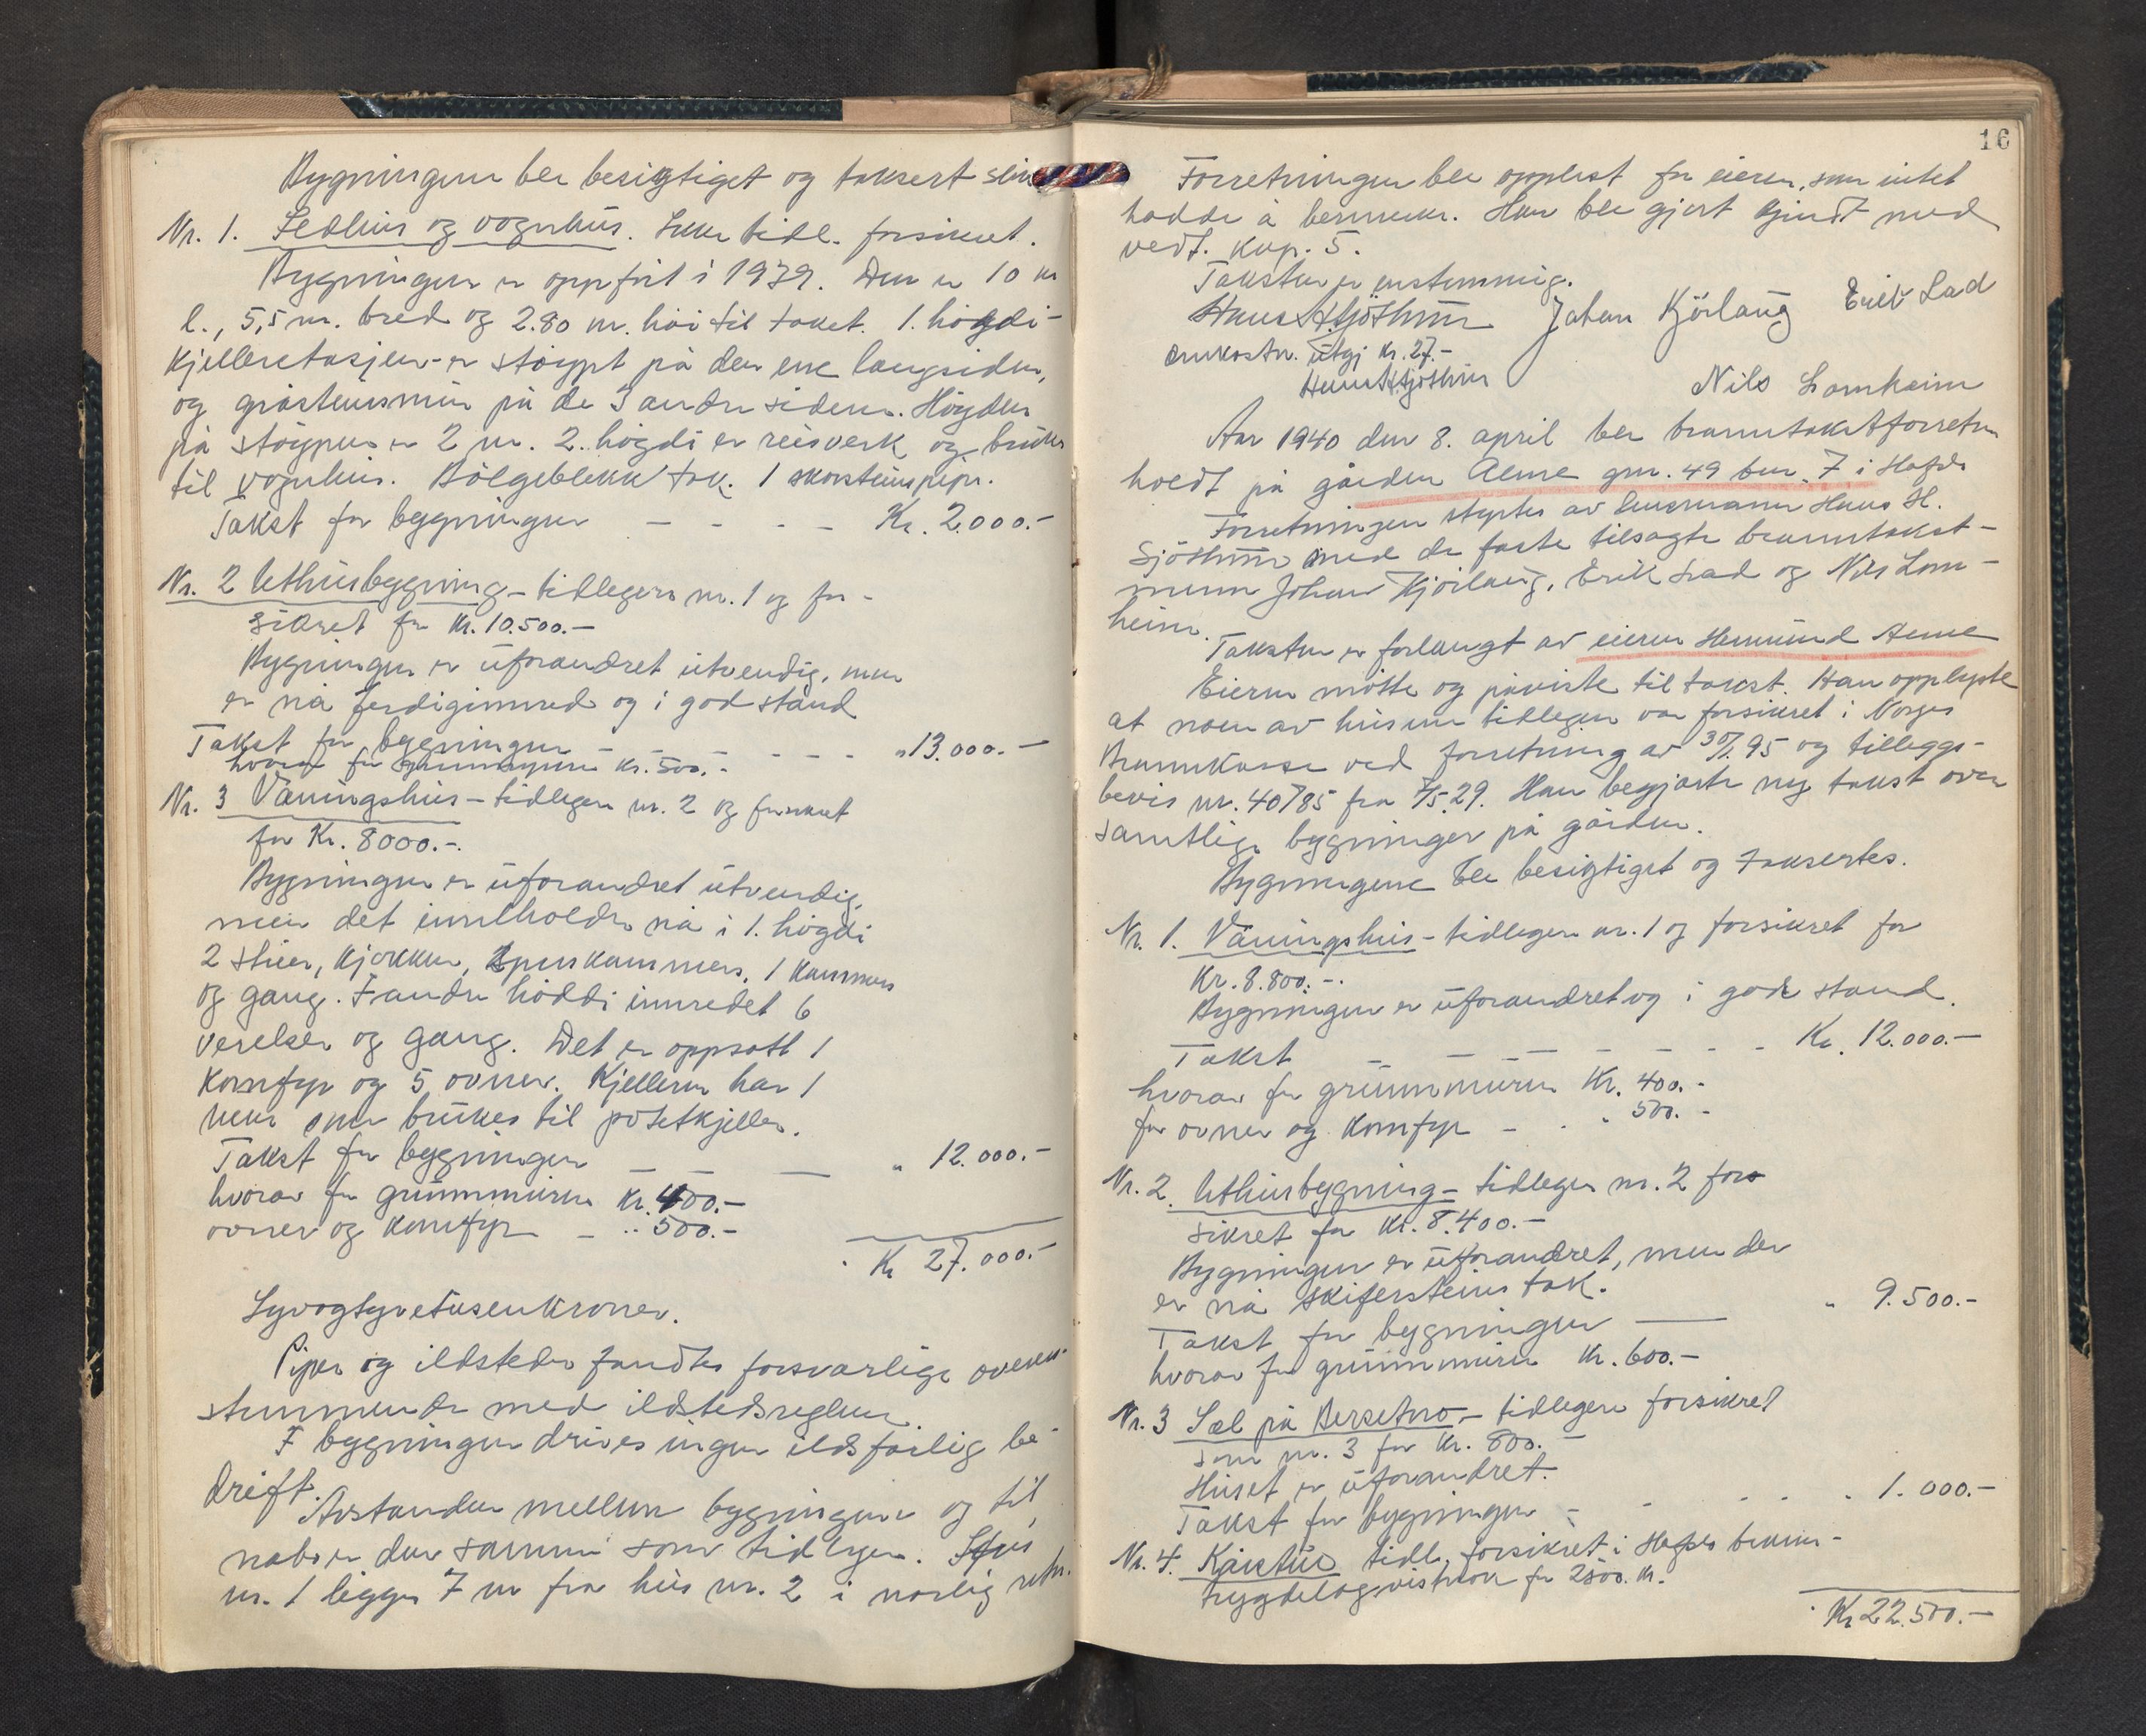 Bygningen ble besigtiget og taksert slik
Nr. 1. Eldhus og vognhus. Ikke tidl. forsikret.
Bygningen er oppført i 1939. Den er 10 m
l., 5,5 m. bred og 2.80 m. höi til taket. 1. högdi-
kjelleretasjen-er stöypt på den ene langsiden,
og gråsteinsmur på de 3 andre sidene. Högden
på stöypen er 2 m. 2. högdi er reisverk og brukes
til vognhus. Bölgeblekk tak. 1 skorsteinspipe.
Takst for bygningen - - - - Kr. 2.000.-
Nr. 2 Uthusbygning - tidlegere nr. 1 og for-
sikret for Kr. 10.500.-
Bygningen er uforandret utvendig, men
er nå ferdiginnred og i god stand
Takst for bygningen - - - - - " 13.000.-
hvorav for grunnmuren Kr. 500.-
Nr. 3 Våningshus - tidlegere nr. 2 og forsikret
for Kr. 8000.-.
Bygningen er uforandret utvendig,
men det innelholder nå i 1. högdi
2 stuer, kjøkken, spiskammers, 1 kammers
og gang. I andre höddi innredet 6
verelser og gang. Det er oppsatt 1
komfyr og 5 ovner. Kjelleren har 1
rum som brukes til potetkjeller.
Takst for bygningen - - - " 12.000.-
hvorav for grunnmuren Kr. 400.-
ovner og komfyr - " 500.-
Kr 27.000.-
Syvogtyvetusenkroner.
Piper og ildsteder fandtes forsvarlige overen-
stemmende med ildstedsreglene.
I bygningen drives ingen ildsfarlig be-
drift.
Avstanden mellem bygningene og til
nabo er den samme som tidlegere. Hus
nr. 1 ligger 7 m fra hus nr. 2 i norlig retn.
16
Forretningen ble opplest for eieren, som intet
hadde å bemerke. Han ble gjort kjendt med
vedt. kap. 5.
Taksten er enstemmig.
Hans H. Sjöthun Johan Kjörlaug Erik Lad
Omkostn. utgj Kr. 27.-
Hans H. Sjöthun
Nils Lomheim
Aar 1940 den 8. april ble branntakstforretn
holdt på gården Alme gnr. 49 bnr. 7 i Hafslo
Forretningen styrtes av lensmann Hans H.
Sjöthun med de faste tilsagte branntakst-
menn Johan Kjörlaug, Erik Lad og Nils Lom-
heim.
Taksten er forlangt av eieren Hermund Alme
Eieren mötte og påviste til takst. Han opplyste
at noen av husene tidlegere var forsikret i Norges
Brannkasse ved forretning av 30/1. 95 og tilleggs-
bevis nr. 40785 fra 7/5.29. Han begjærte ny takst over
samtlige bygninger på gården.
Bygningene ble besigtiget og taksertes.
Nr. 1. Våningshus - tidlegere nr. 1 og forsikret for
Kr. 8.800.-.
Bygningen er uforandret og i god stand.
Takst - - - - - - - Kr. 12.000.-
hvorav for grunnmuren Kr. 400.-
for ovner og komfyr - . " 500.-
Nr. 2. Uthusbygning - tidlegere nr. 2 for-
sikret for Kr. 8.400.-
Bygningen er uforandret, men den
er nå skifersteins tak.
Takst for bygningen - " 9.500.-
hvorav for grunnmuren Kr. 600.-
Nr. 3 Sæl på - tidlegere forsikret
som nr. 3 for Kr. 800.-
Huset er uforandret.
Takst for bygningen - - - - " 1.000.-
Nr. 4. Kårstue tidl. forsikret i Hafslo brann-
trygdelag for 2800. Kr.
Kr 22.500.-